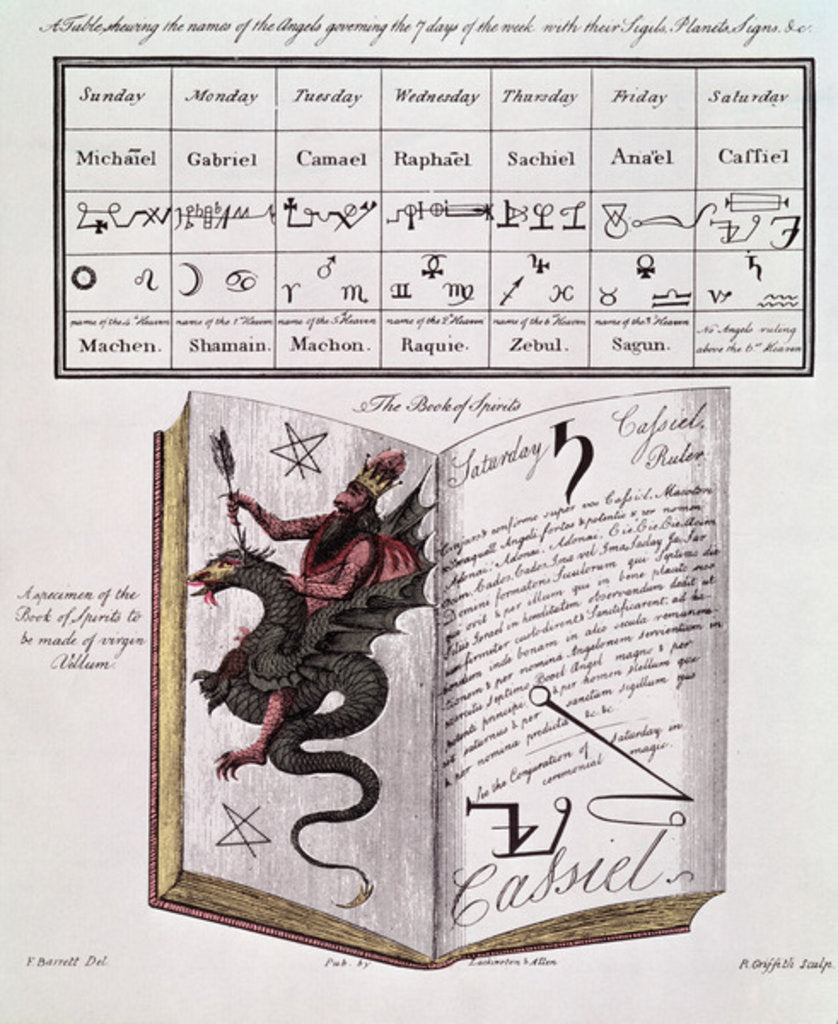 A Table, shewing the names of the Angels governing the 7 days of the week with their Sigils, Planets, Signs, &c.
Sunday Monday Tuesday Wednesday Thursday Friday Saturday
Michaïel Gabriel Camael Raphaël Sachiel Anaël Caſſiel
☉ ♌ ☽ ♋ ♂ ♈ ♏ ☿ ♊ ♍ ♃ ♐ ♓ ♀ ♉ ♎ ♄ ♑ ♒
name of the 4th Heaven name of the 1st Heaven name of the 5th Heaven name of the 2d Heaven name of the 6th Heaven name of the 3d Heaven No Angels ruling
Machen. Shamain. Machon. Raquie. Zebul. Sagun. above the 6th Heaven
The Book of Spirits
A specimen of the
Book of Spirits to
be made of virgin
Vellum.
Saturday ♄ Caſsiel.
Ruler
Conjuro & confirmo super vos Caſsiel, Macoton
Seraquiel Angeli fortes & potentes & per nomen
Adonai, Adonai, Adonai, Eie Eie Eie
Cados, Cados, Ima vel Ima, Saday Ja, Sar
Domini formatoris Seculorum qui Septimo die
quievit & per illum qui in bene placito suo
filiis Israel in hereditatem observandum dedit ut
firmiter custodirent & Sanctificarent, ad
habendam inde bonam in alio secula remunera-
tionem & per nomina Angelorum servientium in
exercitu Septimo Booel Angel magno &
potenti principi & per nomen stellum que
est saturnus & per sanctum sigillum ejus
& per nomina predicta &c. &c.
See the Conjuration of Saturday in
ceremonial magic.
Cassiel
F. Barrett Del. Pub. by Lackington & Allen R. Griffith Sculp.